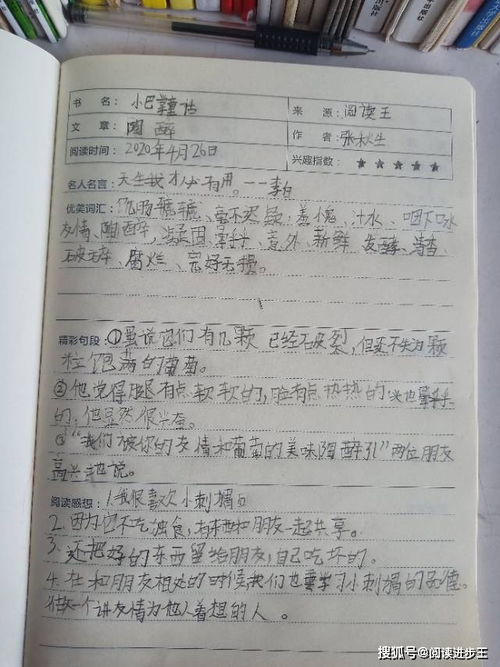 书 名：小巴掌童话
来 源：阅读王
文 章：陶醉
作 者：张秋生
阅读时间：2020年4月26日
兴趣指数：★★★★★
名人名言：天生我才必有用。——李白
优美词汇：毫不迟疑、羞愧、汁水、咽下口水
友情、陶醉、凝固、晕乎乎、意外、新鲜、发酵、
破碎、腐烂、完好无损。
精彩句段：①虽说它们有几颗已经破裂，但还不失为颗
粒饱满的葡萄。
②他觉得腿有点软软的，脸有点热热的头也晕乎乎
的，他显然很兴奋。
③“我们被你的友情和葡萄的美味陶醉了”两位朋友
高兴地说。
阅读感想：1.我很喜欢小刺猬
2.因为它不吃独食，有东西和朋友一起共享。
3.还把好的东西留给朋友，自己吃坏的。
4.在和朋友相处的时候我们也要学习小刺猬的品德。
做一个讲友情为他人着想的人。
搜狐号@阅读进步王